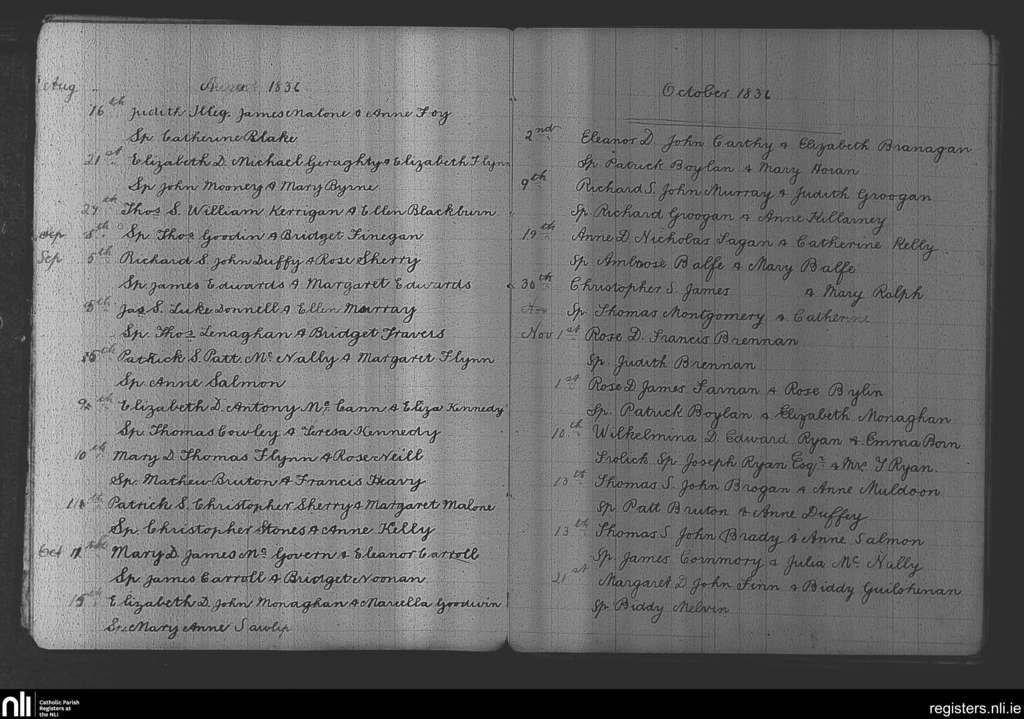 Aug August 1836
16th Judith Illeg. James Malone & Anne Foy
Sp Catherine Blake
21st Elizabeth D. Michael Geraghty & Elizabeth Flynn
Sp John Mooney & Mary Byrne
Thos S. William Kerrigan & Ellen Blackburn
Sep 5th Sp. Thos Goodin & Bridget Finegan
Sep 5th Richard S. John Duffy & Rose Sherry
Sp James Edwards & Margaret Edwards
Jas S. Luke Donnell & Ellen Murray
Sp. Thos Lenaghan & Bridget Travers
Patrick S. Patt. Mc Nally & Margaret Flynn
Sp Anne Salmon
9th Elizabeth D. Antony Mc Cann & Eliza Kennedy
Sp. Thomas Cowley & Teresa Kennedy
10th Mary D Thomas Flynn & Rose Neill
Sp. Mathew Bruton & Francis Heavy
11th Patrick S. Christopher Sherry & Margaret Malone
Sp. Christopher Stones & Anne Kelly
Oct Mary D. James Mc Govern & Eleanor Carroll
Sp James Carroll & Bridget Noonan
15th Elizabeth D. John Monaghan & Marcella Goodwin
Sp. Mary Anne
October 1836
2nd Eleanor D. John Carthy & Elizabeth Branagan
Sp Patrick Boylan & Mary Horan
9th Richard S. John Murray & Judith Groogan
Sp Richard Groogan & Anne Killarney
19th Anne D. Nicholas Fagan & Catherine Kelly
Sp Ambrose Balfe & Mary Balfe
30th Christopher S. James & Mary Ralph
Nov Sp Thomas Montgomery & Catherine
Nov 1st Rose D. Francis Brennan
Sp. Judith Brennan
1st Rose D James Farnan & Rose Bylin
Sp. Patrick Boylan & Elizabeth Monaghan
10th Wilhelmina D. Edward Ryan & Emma Born
Frolick Sp Joseph Ryan Esqr & Mrs T Ryan.
13th Thomas S. John Brogan & Anne Muldoon
Sp Patt Bruton & Anne Duffey
13th Thomas S John Brady & Anne Salmon
Sp. James Cornmory & Julia Mc Nally
21st Margaret D John Finn & Biddy Guilshenan
Sp Biddy Melvin
nli Catholic Parish
Registers at
the NLI
registers.nli.ie